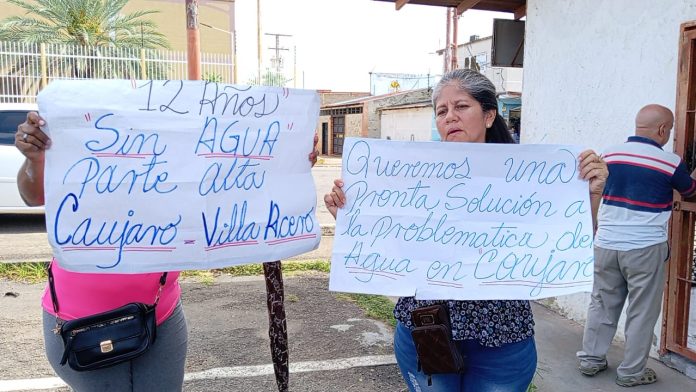 "12 Años"
"Sin AGUA"
Parte alta
Caujaro - Villa Acero
Queremos una
Pronta Solución a
la Problematica del
Agua en Caujaro